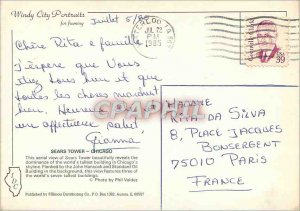 Windy City Portraits
for framing
Juillet 5/85
WATERLOO IA
JUL 12
PM
1985
USA 39
Chère Rita e famille
j'espère que Vous
chez vous bien et que
toutes les choses marchent
bien. Heureux
un affectueux salut.
Gianna
PRCARTE.com
MADAME
RITA DA SILVA
8, PLACE JACQUES
BONSERGENT
75010 PARIS
FRANCE
SEARS TOWER — CHICAGO
This aerial view of Sears Tower beautifully reveals the
dominance of the world's tallest building in Chicago's
skyline. Flanked by the John Hancock and Standard Oil
Building in the background this view features three of
the world's tallest buildings.
© Photo by Phil Valdez
Published by Fillmore Distributing Co., P.O. Box 1092, Aurora, IL 60507